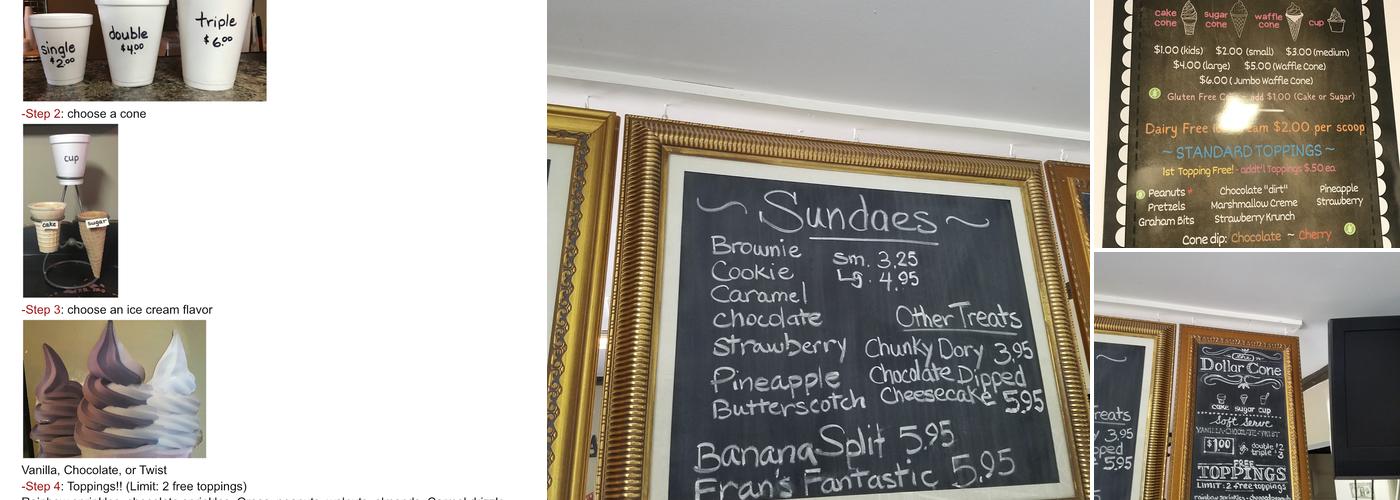 single
$2.00
double
$4.00
triple
$6.00
-Step 2: choose a cone
cup
cake
sugar
-Step 3: choose an ice cream flavor
Vanilla, Chocolate, or Twist
-Step 4: Toppings!! (Limit: 2 free toppings)
~ Sundaes ~
Brownie
Cookie
Caramel
Chocolate
Strawberry
Pineapple
Butterscotch
Sm. 3.25
Lg. 4.95
Other Treats
Chunky Dory 3.95
Chocolate Dipped
Cheesecake 5.95
Banana Split 5.95
Fran's Fantastic 5.95
cake cone
sugar cone
waffle cone
cup
$1.00 (kids) $2.00 (small) $3.00 (medium)
$4.00 (large) $5.00 (Waffle Cone)
$6.00 (Jumbo Waffle Cone)
Gluten Free add $1.00 (Cake or Sugar)
Dairy Free $2.00 per scoop
~ STANDARD TOPPINGS ~
1st Topping Free! - addt'l Toppings $.50 ea.
Peanuts * Chocolate "dirt" Pineapple
Pretzels Marshmallow Creme Strawberry
Graham Bits Strawberry Krunch
Cone dip: Chocolate ~ Cherry
reats
3.95
pped
5.95
the
Dollar Cone
cake sugar cup
Soft Serve
VANILLA·CHOCOLATE·TWIST
$1.00
double $2
triple $3
FREE
TOPPINGS
Limit: 2 free toppings